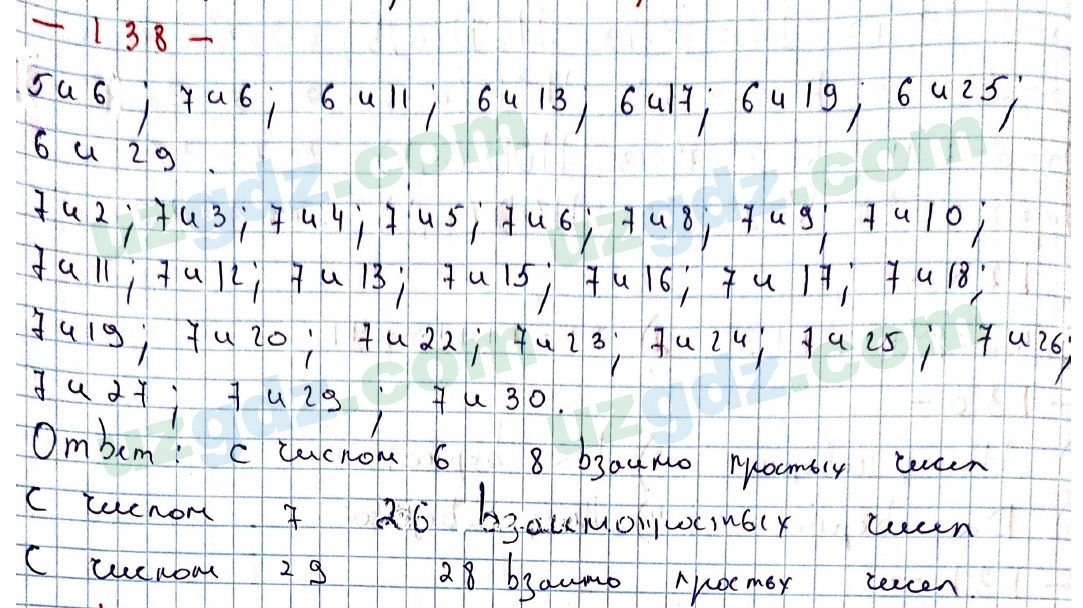 - 138 -
5 и 6 ; 7 и 6 ; 6 и 11 ; 6 и 13 ; 6 и 17 ; 6 и 19 ; 6 и 25 ;
6 и 29 .
7 и 2 ; 7 и 3 ; 7 и 4 ; 7 и 5 ; 7 и 6 ; 7 и 8 ; 7 и 9 ; 7 и 10 ;
7 и 11 ; 7 и 12 ; 7 и 13 ; 7 и 15 ; 7 и 16 ; 7 и 17 ; 7 и 18 ;
7 и 19 ; 7 и 20 ; 7 и 22 ; 7 и 23 ; 7 и 24 ; 7 и 25 ; 7 и 26 ;
7 и 27 ; 7 и 29 ; 7 и 30 .
Ответ : с числом 6 8 взаимо простых чисел
С числом 7 26 взаимопростых чисел
С числом 29 28 взаимо простх чисел.
uzgdz.com
uzgdz.com
uzgdz.com
uzgdz.com